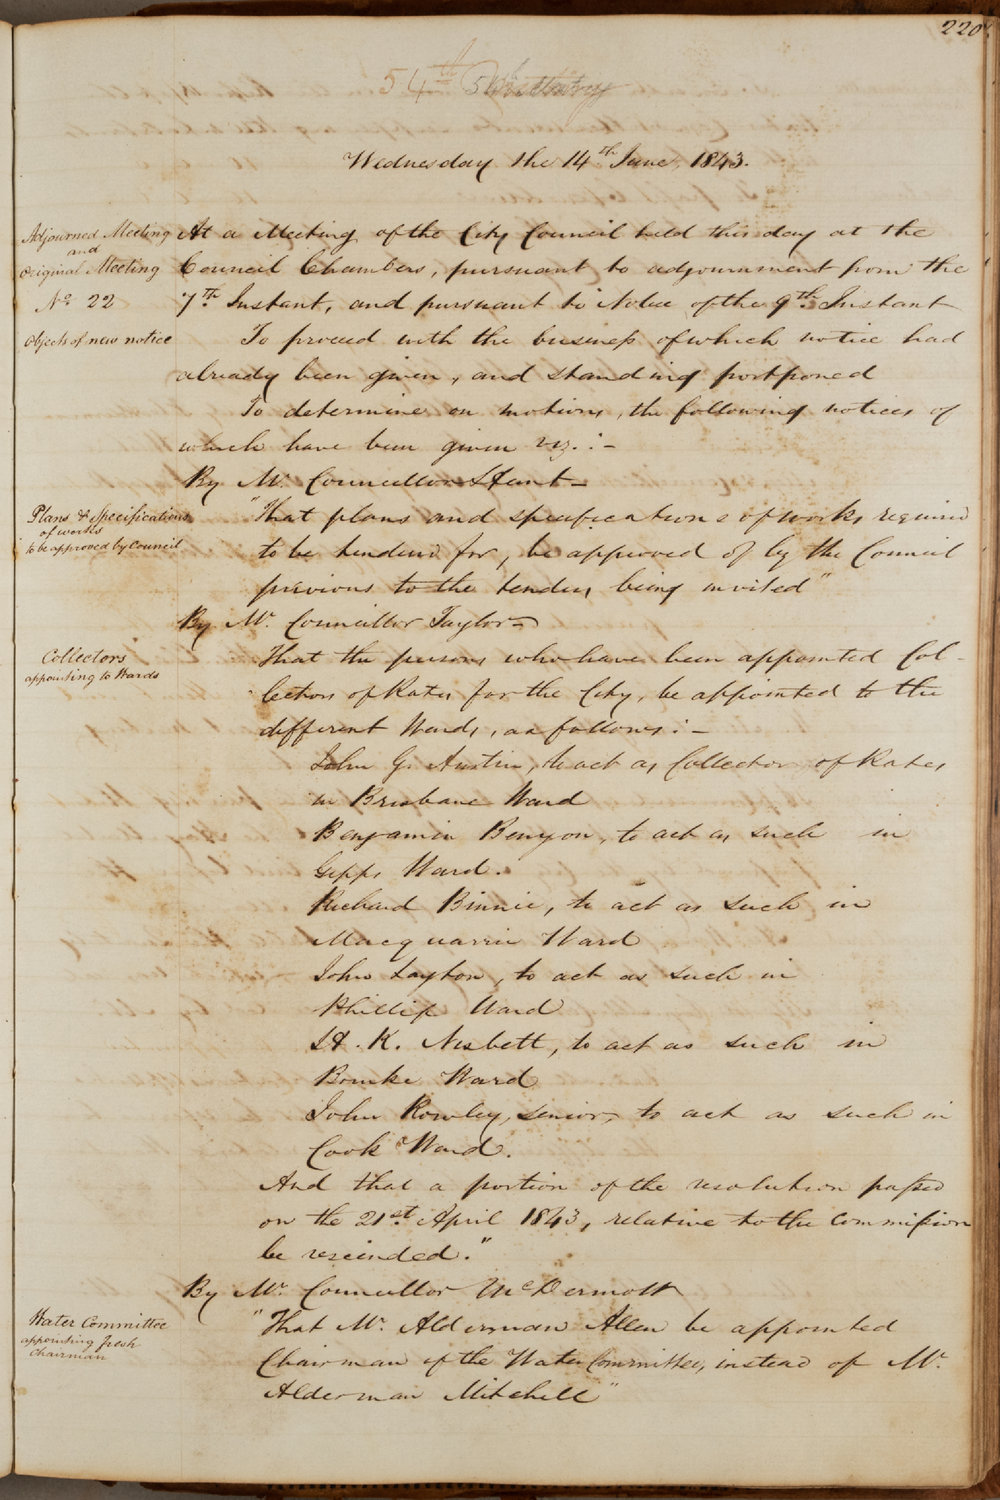 220
54th
Wednesday the 14th June, 1843.
Adjourned Meeting
and
Original Meeting
No. 22
At a Meeting of the City Council held this day at the
Council Chambers, pursuant to adjournment from the
7th Instant, and pursuant to Notice of the 9th Instant
Objects of new notice
To proceed with the business of which notice had
already been given, and standing postponed
To determine on motions, the following notices of
which have been given viz. :-
By Mr. Councillor Hunt-
Plans & Specifications
of works
to be approved by Council
"That plans and specifications of works required
to be tendered for, be approved of by the Council
previous to the tenders being invited"
By Mr. Councillor Taylor-
Collectors
appointing to Wards
"That the persons who have been appointed Col-
lectors of Rates for the City, be appointed to the
different Wards, as follows :-
John G. Austin, to act as Collector of Rates
in Brisbane Ward
Benjamin Benyon, to act as such in
Gipps Ward.
Richard Binnie, to act as such in
Macquarrie Ward
John Layton, to act as such in
Phillip Ward
H. K. Nesbett, to act as such in
Bourke Ward
John Rowley, senior, to act as such in
Cook Ward.
And that a portion of the resolution passed
on the 21st April 1843, relative to the Commission
be rescinded."
By Mr. Councillor McDermott
Water Committee
appointing fresh
Chairman
"That Mr. Alderman Allen be appointed
Chairman of the Water Committee, instead of Mr.
Alderman Mitchell"